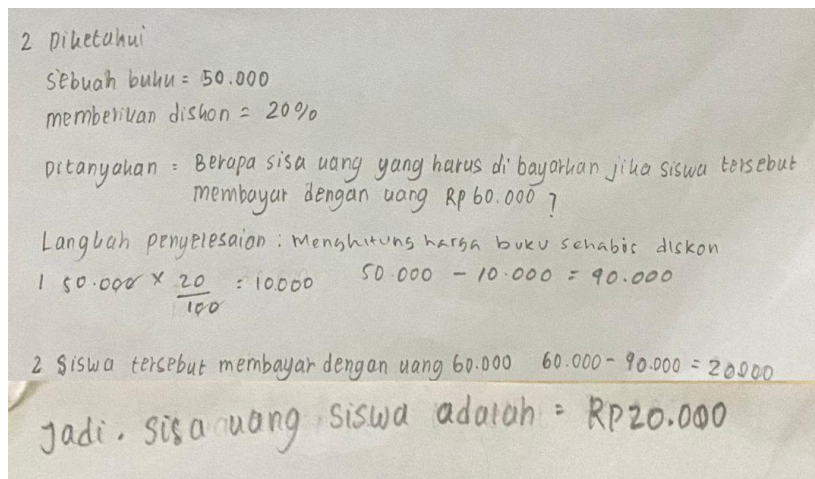 2 Diketahui
sebuah buku = 50.000
memberikan diskon = 20%
Ditanyakan = Berapa sisa uang yang harus di bayarkan jika siswa tersebut
membayar dengan uang Rp 60.000 ?
Langkah penyelesaian : Menghitung harga buku sehabis diskon
1 50.000 × 20/100 = 10.000 50.000 - 10.000 = 40.000
2 Siswa tersebut membayar dengan uang 60.000 60.000 - 40.000 = 20000
Jadi. sisa uang siswa adalah = RP20.000